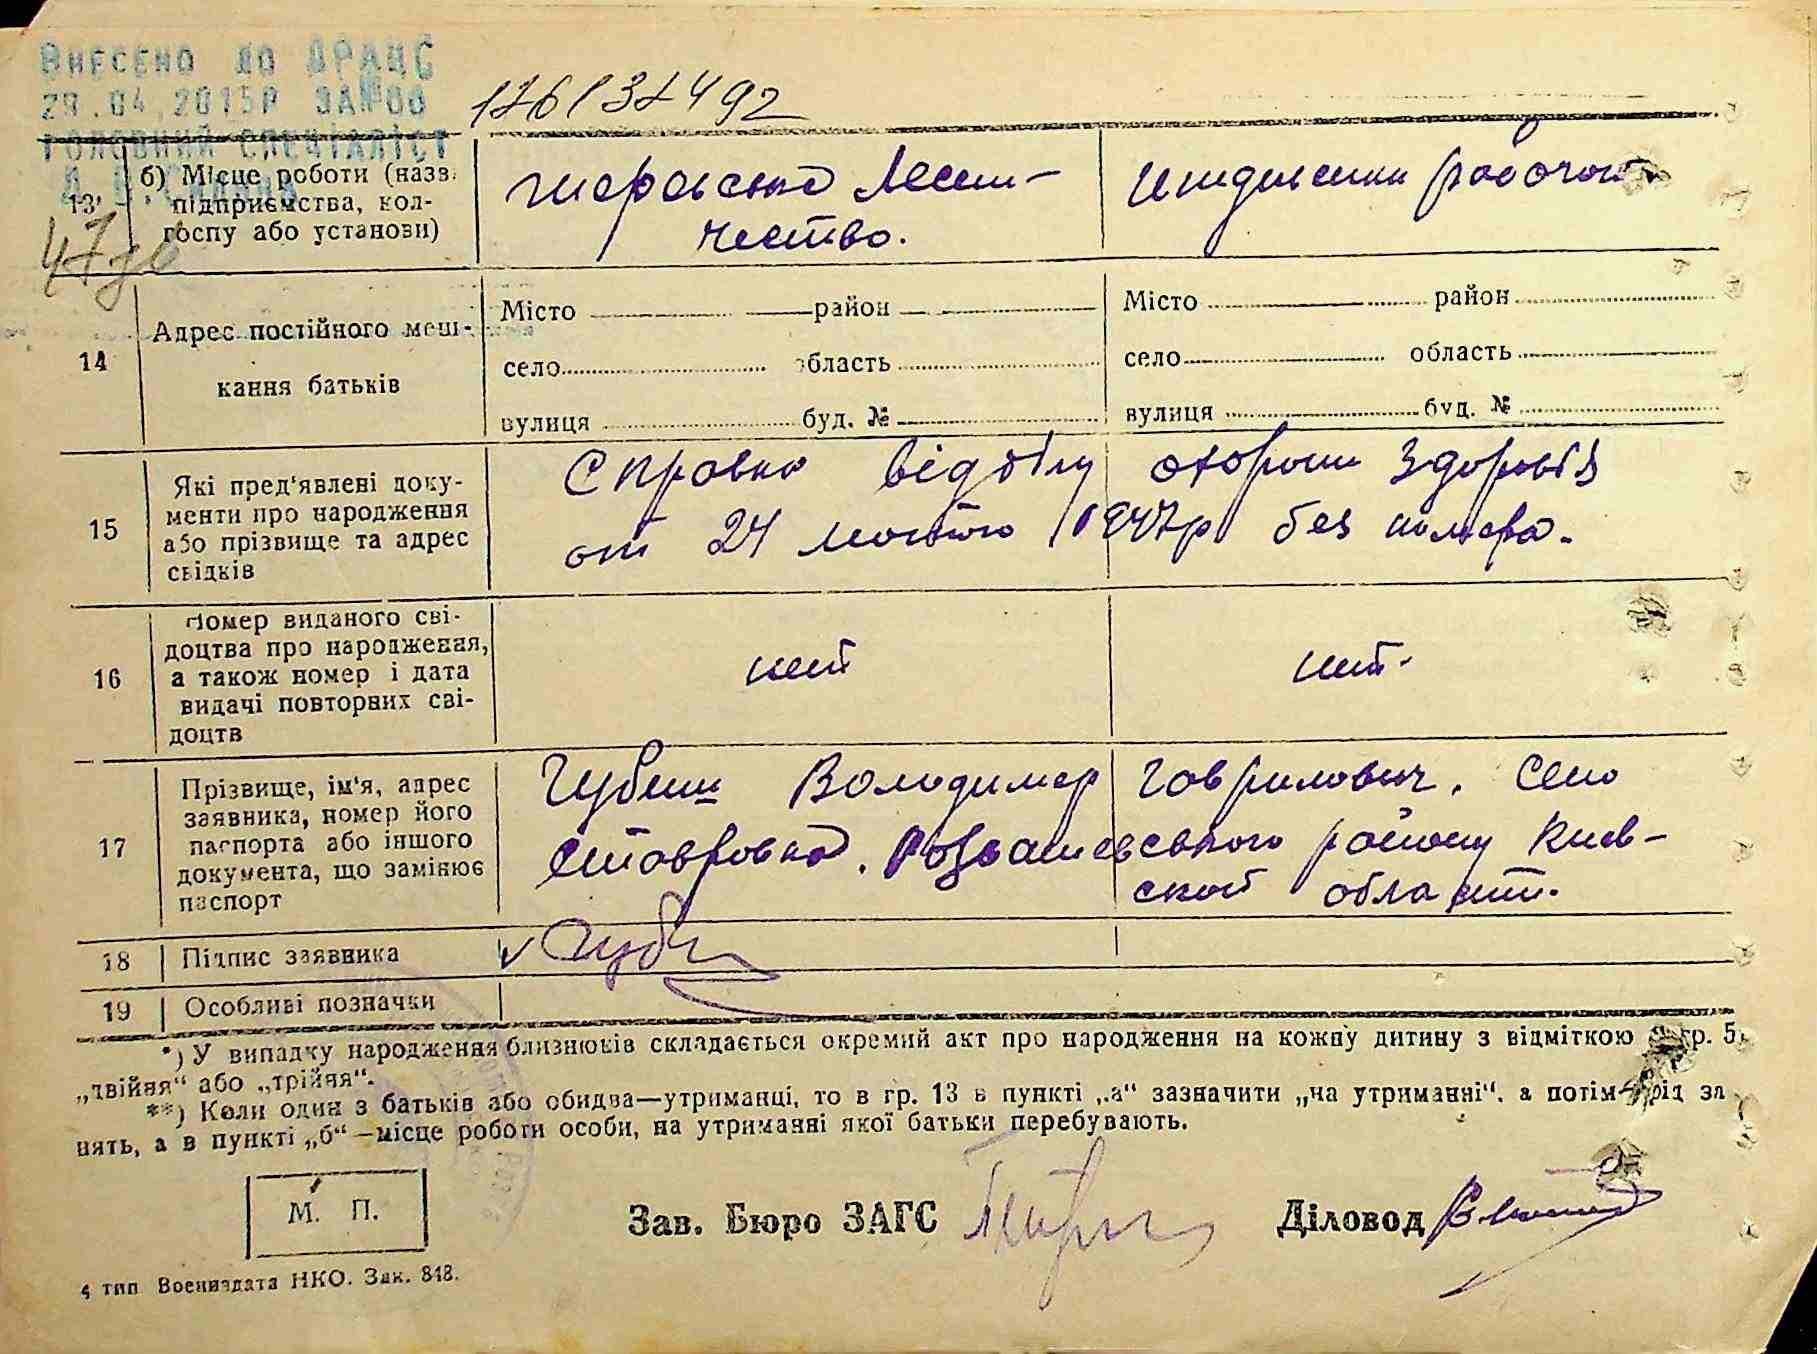 ВНЕСЕНО ДО ДРАЦС
29.04.2015Р ЗАПОО
ГОЛОВНИЙ СПЕЦІАЛІСТ
47
13
б) Місце роботи (назв.
підприємства, кол-
госпу або установи)
лесни-
чество.
14
Адрес постійного меш-
кання батьків
Місто район
село область
вулиця буд. №
Місто район
село область
вулиця буд. №
15
Які пред'явлені доку-
менти про народження
або прізвище та адрес
свідків
Справка відділу охорони здоровія
от 24 лютого 1947р без номера.
16
Номер виданого сві-
доцтва про народження,
а також номер і дата
видачі повторних сві-
доцтв
нет
нет.
17
Прізвище, ім'я, адрес
заявника, номер його
паспорта або іншого
документа, що замінює
паспорт
Володимер Гаврилович. Село
Ставровка. Розважевського району Киев-
ской области.
18
Підпис заявника
19
Особливі позначки
*) У випадку народження близнюків складається окремий акт про народження на кожну дитину з відміткою в гр. 5,
„двійня“ або „трійня“.
**) Коли один з батьків або обидва—утриманці, то в гр. 13 в пункті „а“ зазначити „на утриманні“, а потім рід за
нять, а в пункті „б“ —місце роботи особи, на утриманні якої батьки перебувають.
М. П.
Зав. Бюро ЗАГС
Діловод
4 тип Воениздата НКО. Зак. 848.